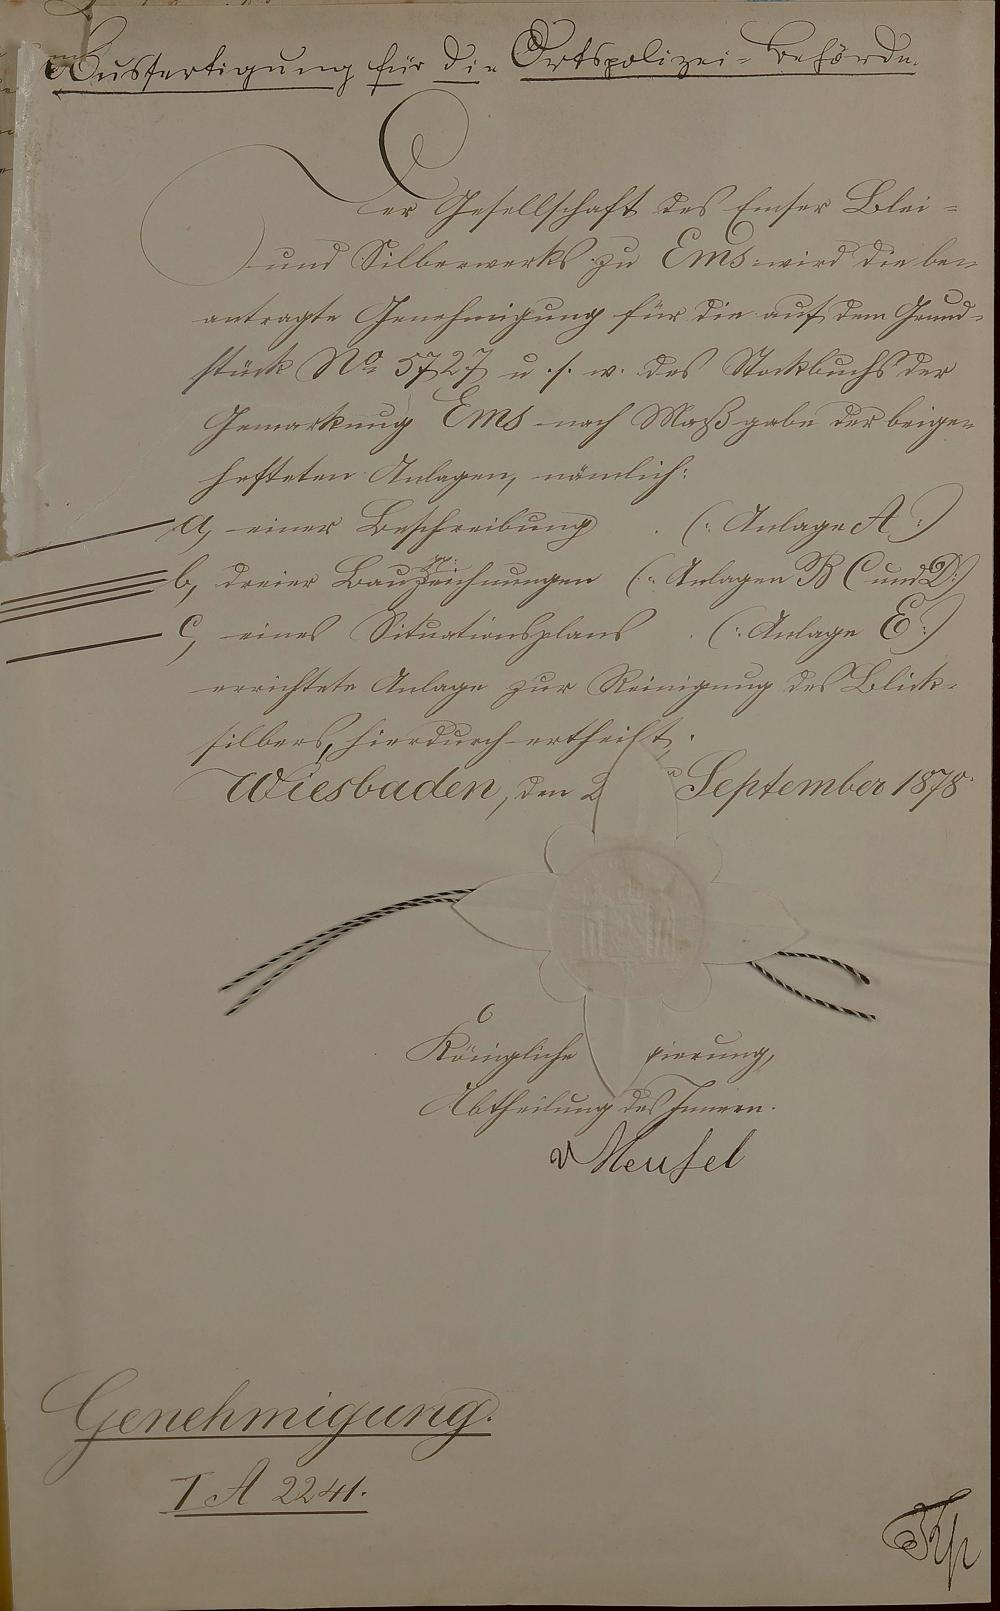 Ausfertigung für die Ortspolizei-Behörde.
Der Gesellschaft des Emser Blei-
und Silberwerks zu Ems wird die be-
antragte Genehmigung für die auf dem Grund-
stück No 5727 u. s. w. des Stockbuchs der
Gemarkung Ems nach Maßgabe der beige-
hefteten Anlagen, nämlich:
a, einer Beschreibung (: Anlage A :)
b, dreier Bauzeichnungen (: Anlagen B C und D :)
c, eines Situationsplans (: Anlage E :)
errichtete Anlage zur Reinigung des Blick-
silbers, hierdurch ertheilt.
Wiesbaden, den 2 September 1878.
Königliche gierung,
Abtheilung des Innern.
Genehmigung.
I A 2241.